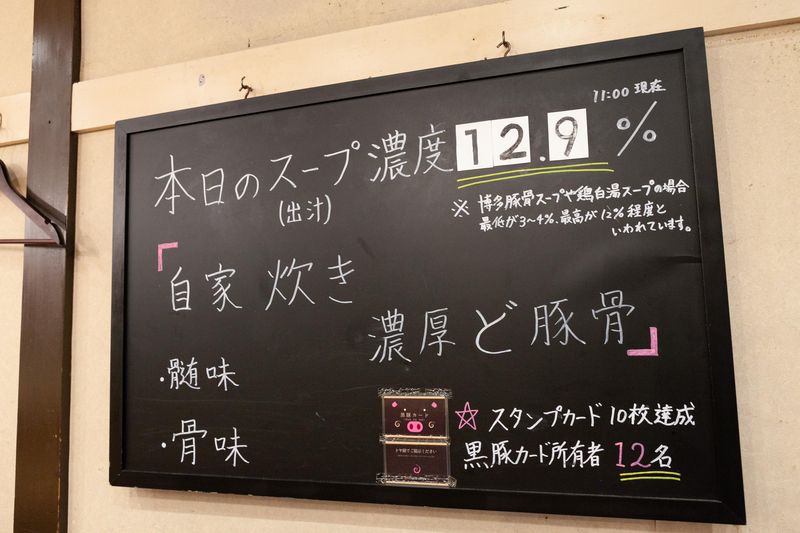 11:00 現在
本日のスープ濃度 12.9%
(出汁)
※ 博多豚骨スープや鶏白湯スープの場合
最低が3～4%、最高が12%程度と
いわれています。
「自家炊き
濃厚ど豚骨」
・髄味
・骨味
☆ スタンプカード10枚達成
黒豚カード所有者 12名
黒豚カード